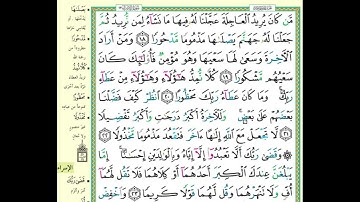 مَّن كَانَ يُرِيدُ ٱلْعَاجِلَةَ عَجَّلْنَا لَهُۥ فِيهَا مَا نَشَآءُ لِمَن نُّرِيدُ ثُمَّ
جَعَلْنَا لَهُۥ جَهَنَّمَ يَصْلَىٰهَا مَذْمُومًا مَّدْحُورًا ١٨ وَمَنْ أَرَادَ
ٱلْأَخِرَةَ وَسَعَىٰ لَهَا سَعْيَهَا وَهُوَ مُؤْمِنٌ فَأُو۟لَٰٓئِكَ كَانَ
سَعْيُهُم مَّشْكُورًا ١٩ كُلًّا نُّمِدُّ هَٰٓؤُلَآءِ وَهَٰٓؤُلَآءِ مِنْ عَطَآءِ
رَبِّكَ وَمَا كَانَ عَطَآءُ رَبِّكَ مَحْظُورًا ٢٠ ٱنظُرْ كَيْفَ فَضَّلْنَا
بَعْضَهُمْ عَلَىٰ بَعْضٍ وَلَلْأَخِرَةُ أَكْبَرُ دَرَجَٰتٍ وَأَكْبَرُ تَفْضِيلًا
٢١ لَّا تَجْعَلْ مَعَ ٱللَّهِ إِلَٰهًا ءَاخَرَ فَتَقْعُدَ مَذْمُومًا مَّخْذُولًا
٢٢ وَقَضَىٰ رَبُّكَ أَلَّا تَعْبُدُوٓا۟ إِلَّآ إِيَّاهُ وَبِٱلْوَٰلِدَيْنِ إِحْسَٰنًا إِمَّا
يَبْلُغَنَّ عِندَكَ ٱلْكِبَرَ أَحَدُهُمَآ أَوْ كِلَاهُمَا فَلَا تَقُل لَّهُمَآ
أُفٍّ وَلَا تَنْهَرْهُمَا وَقُل لَّهُمَا قَوْلًا كَرِيمًا ٢٣ وَٱخْفِضْ
يَصْلَىٰهَا
الإسراء